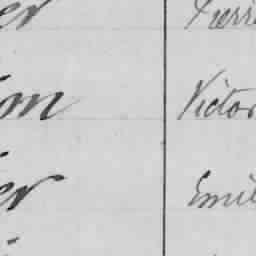 er Pierre
on Victor
er Emil